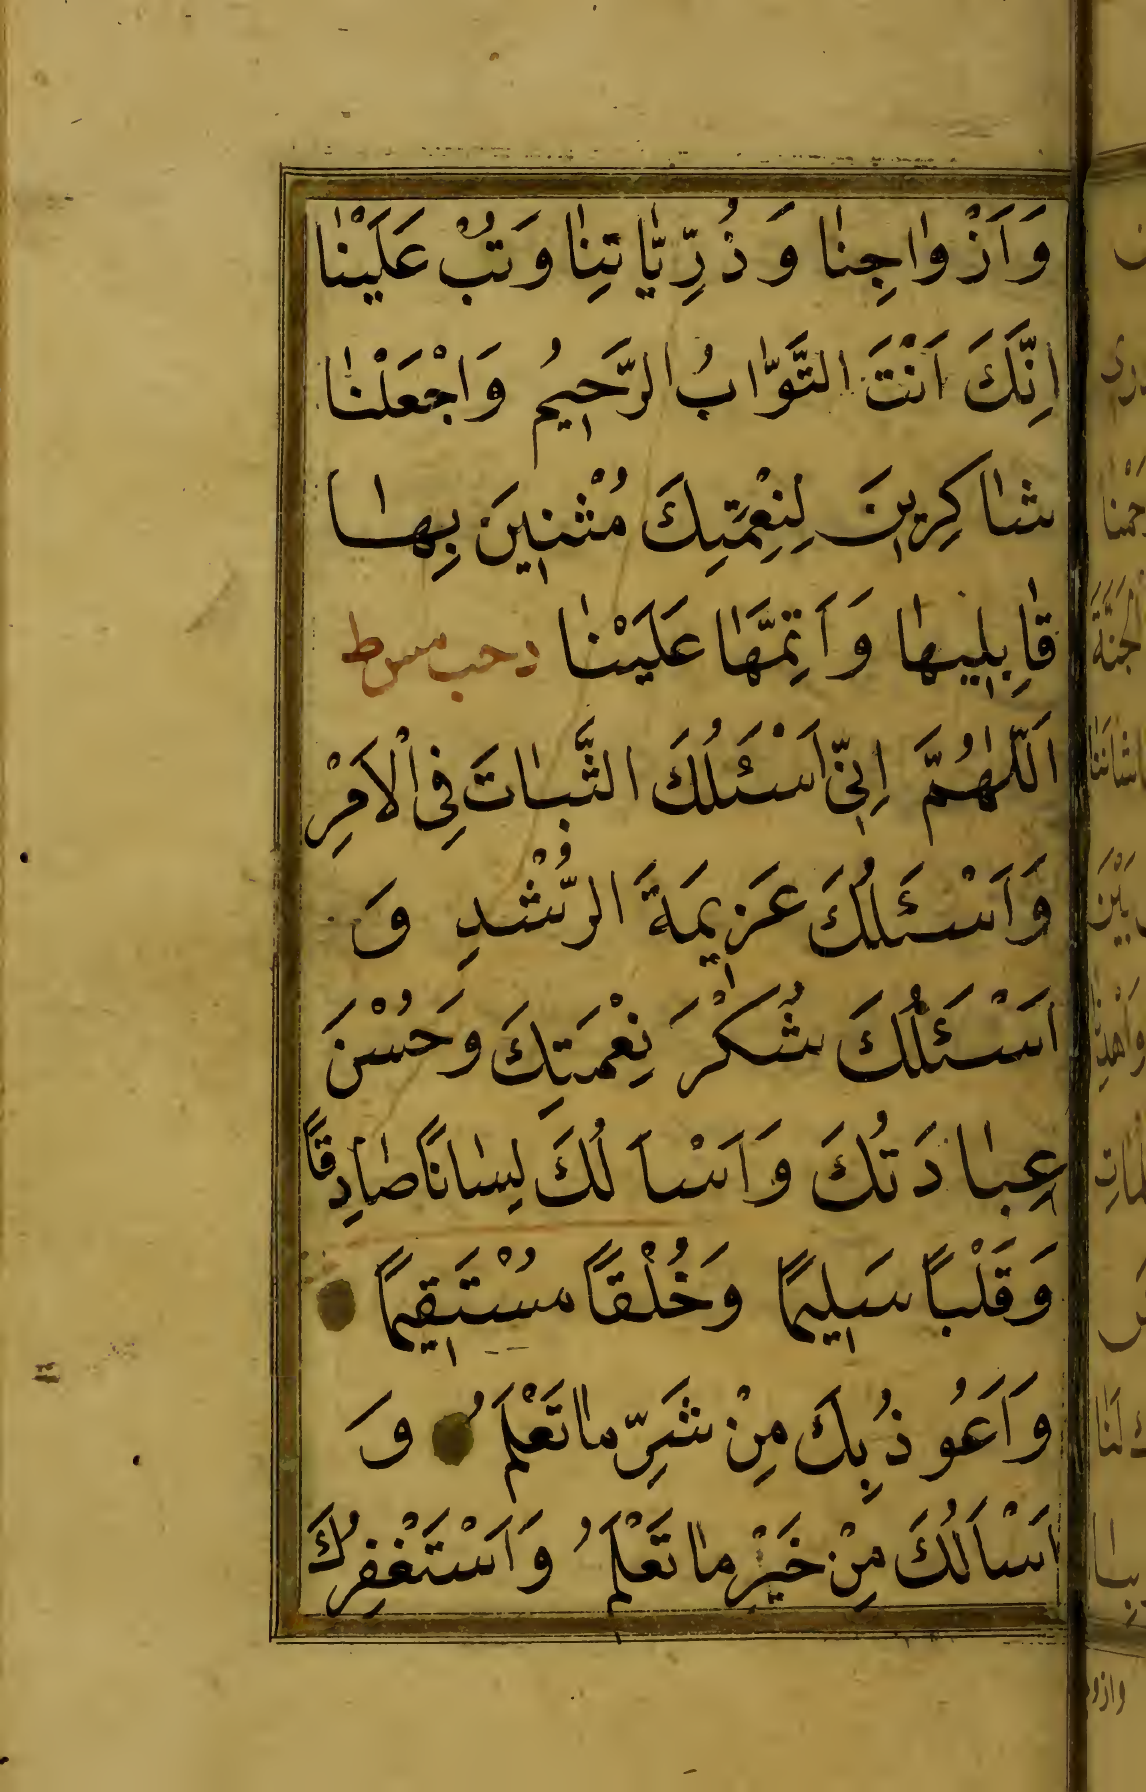 وَاَزْوٰاجِنٰا وَذُرِّيّٰاتِنٰا وَتُبْ عَلَيْنٰا
اِنَّكَ اَنْتَ التَّوّٰابُ الرَّحيمُ وَاجْعَلْنٰا
شٰاكِرِينَ لِنِعْمَتِكَ مُثْنينَ بِهٰا
قٰابِليهٰا وَاَتِمَّهٰا عَلَيْنٰا د حب مس ط
اَللّٰهُمَّ اِنّي اَسْئَلُكَ الثَّبٰاتَ فِى الْاَمْرِ
وَاَسْئَلُكَ عَزيمَةَ الرُّشْدِ وَ
اَسْئَلُكَ شُكْرَ نِعْمَتِكَ وَحُسْنَ
عِبٰادَتُكَ وَاَسْاَلُكَ لِسٰانًا صٰادِقًا
وَقَلْبًا سَليمًا وَخُلْقًا مُسْتَقيمًا
وَاَعُوذُ بِكَ مِنْ شَرِّ مٰا تَعْلَمُ وَ
اَسْاَلُكَ مِنْ خَيْرِ مٰا تَعْلَمُ وَاَسْتَغْفِرُكَ
وازو